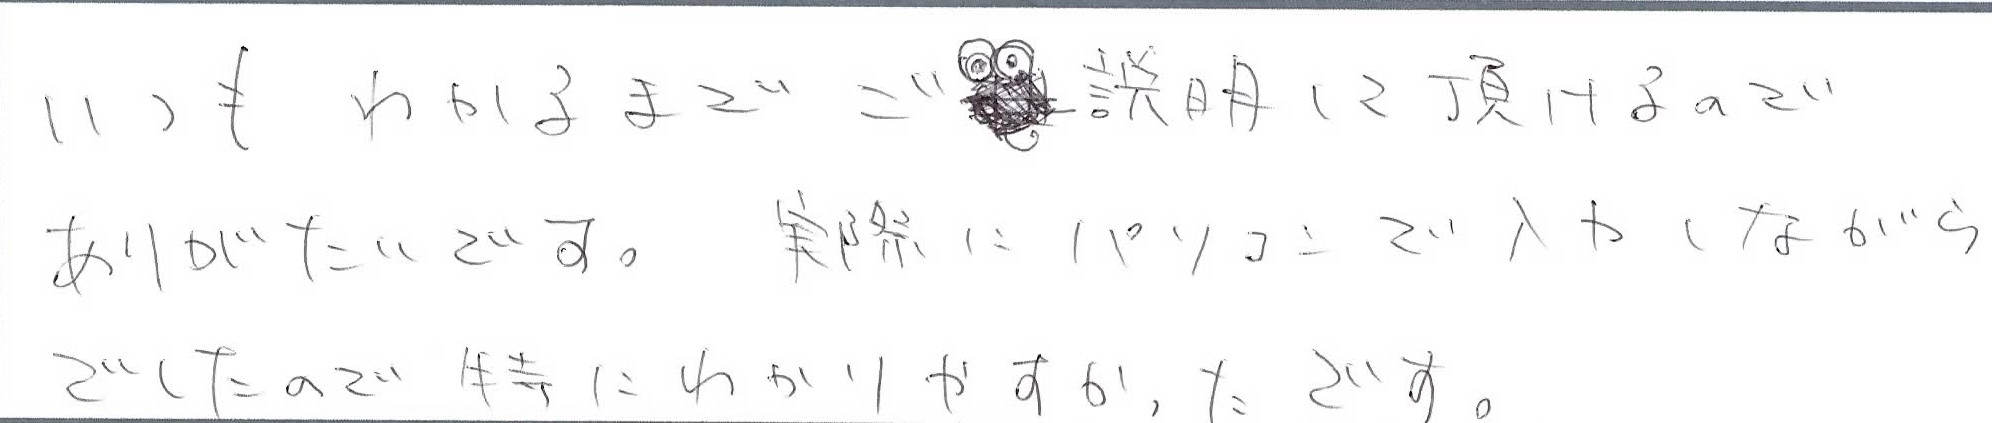 いつも わかるまで ご説明して頂けるので
ありがたいです。 実際にパソコンで入力しながら
でしたので 特にわかりやすかったです。